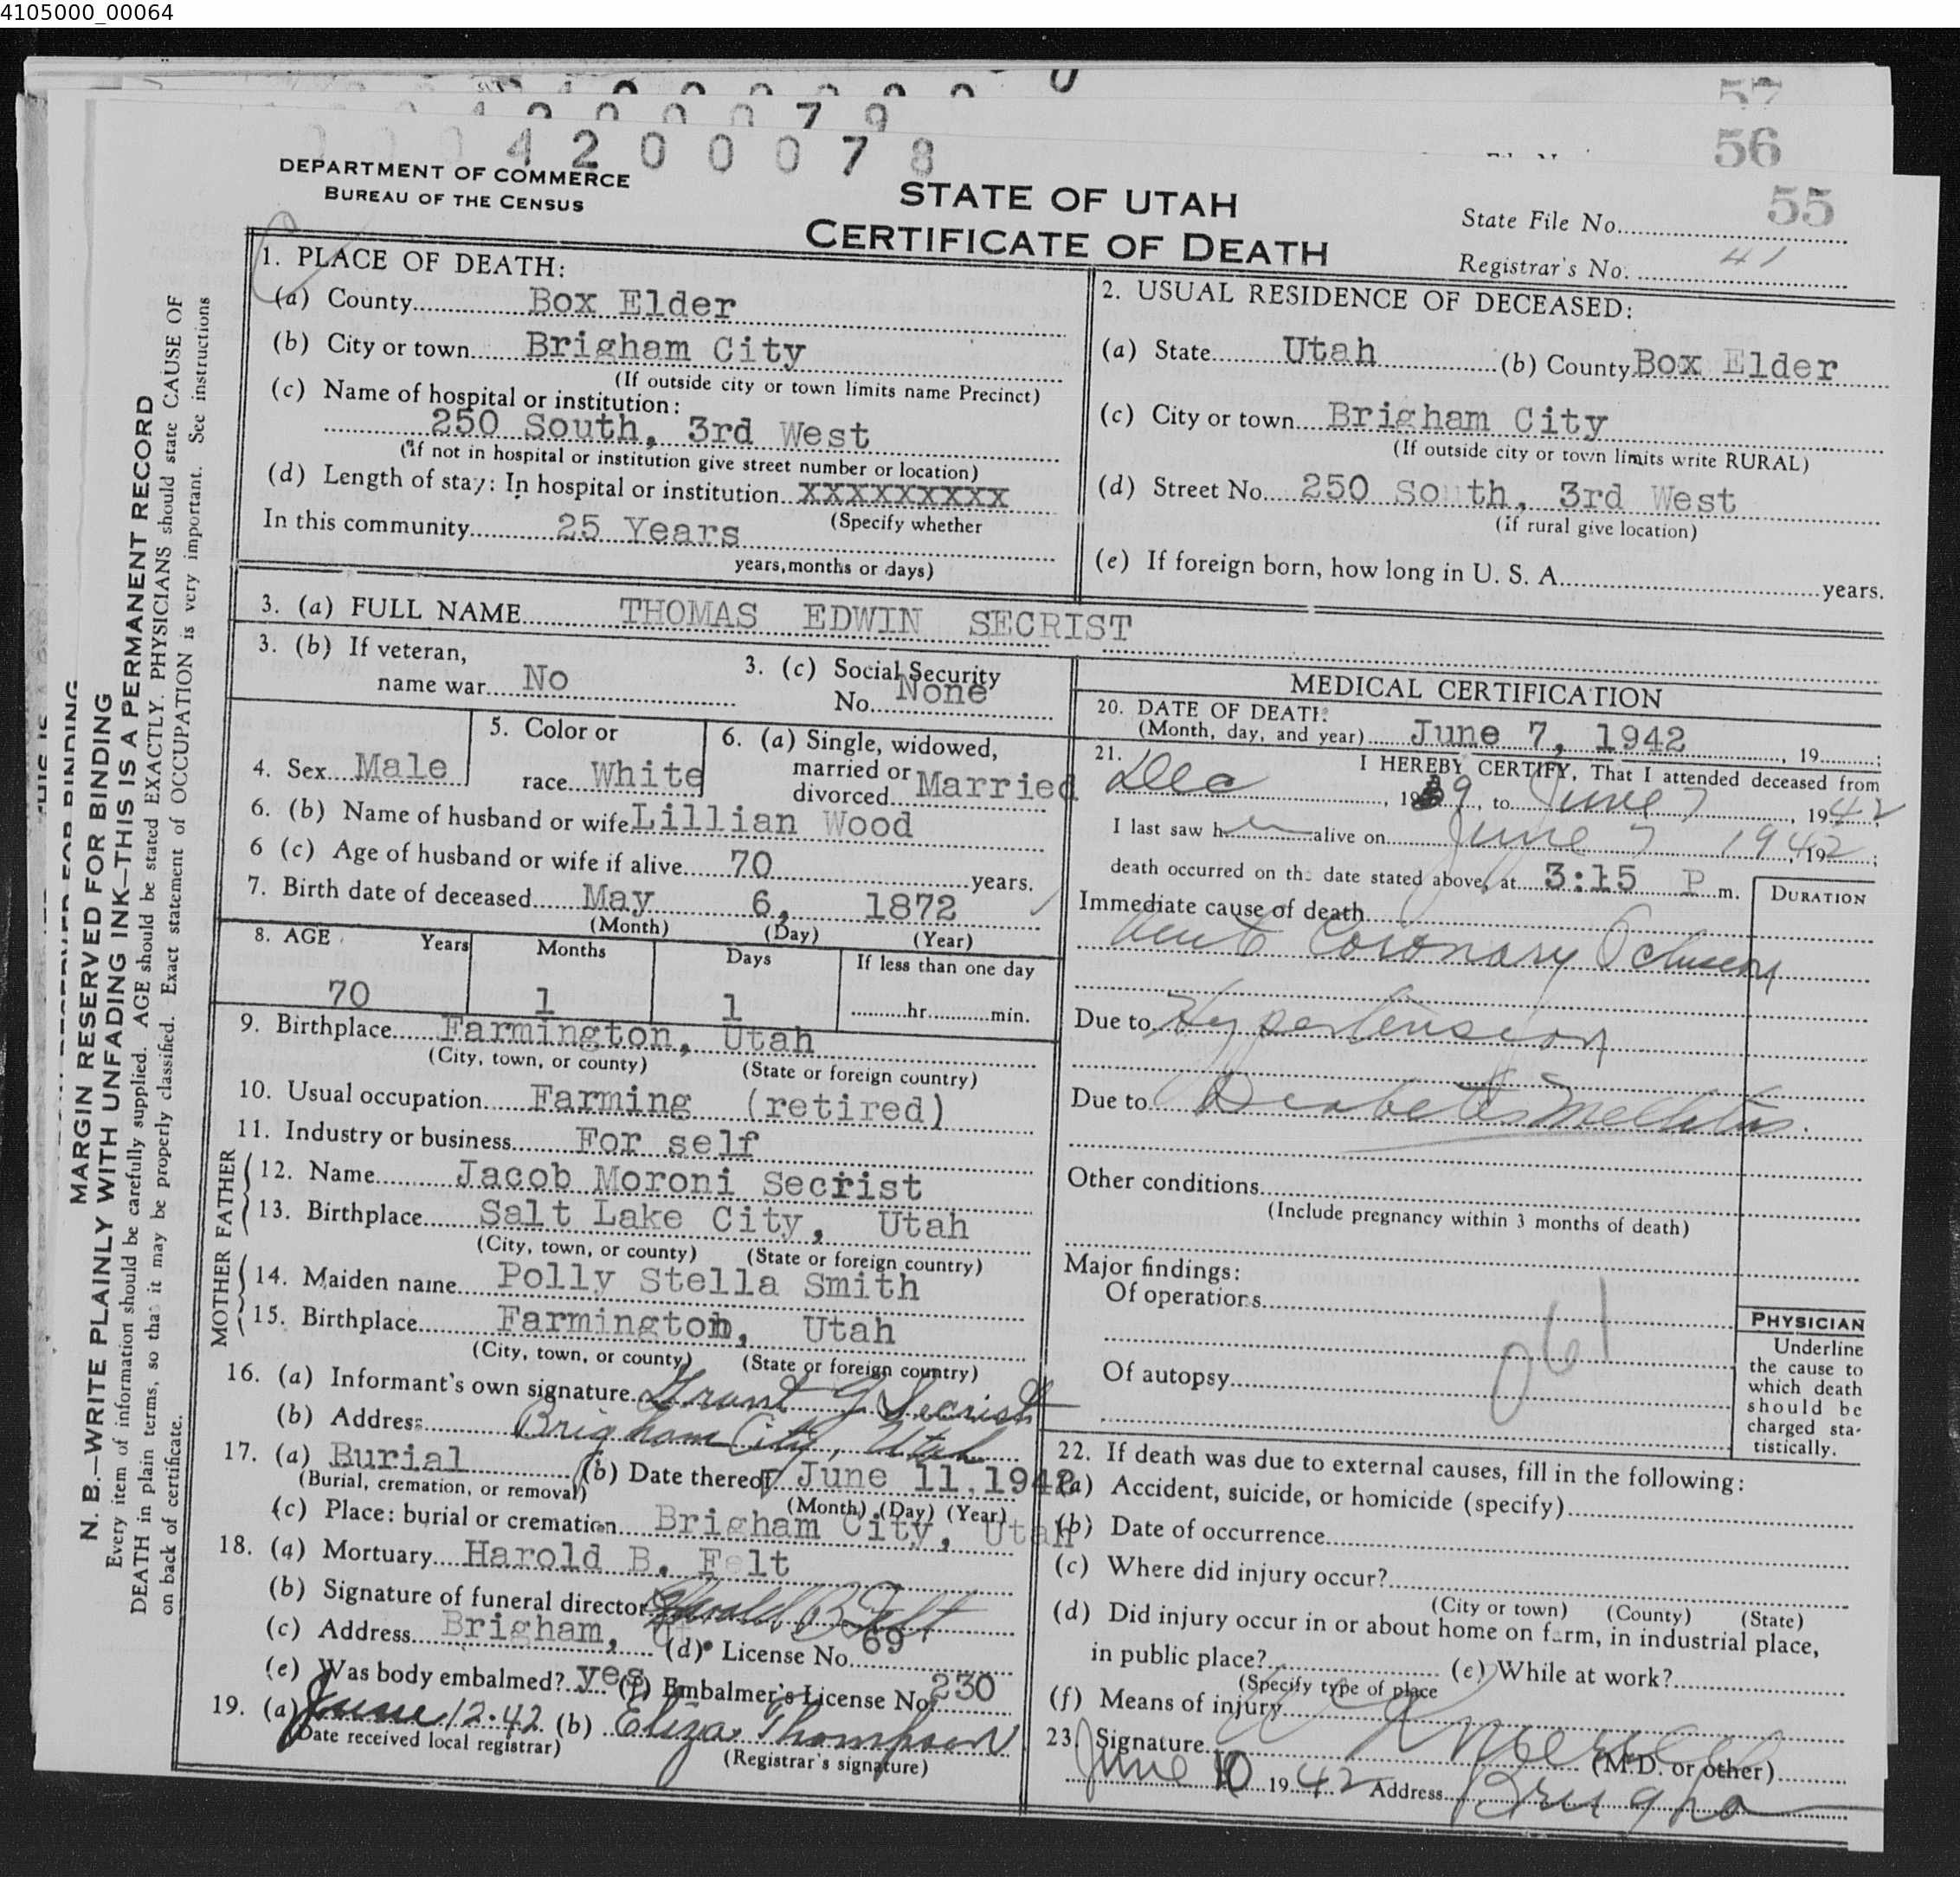 4105000_00064
57
4200079
56
4200078
55
DEPARTMENT OF COMMERCE
BUREAU OF THE CENSUS
STATE OF UTAH
CERTIFICATE OF DEATH
State File No.
Registrar's No. 41
MARGIN RESERVED FOR BINDING
N. B.—WRITE PLAINLY WITH UNFADING INK—THIS IS A PERMANENT RECORD
Every item of information should be carefully supplied. AGE should be stated EXACTLY. PHYSICIANS should state CAUSE OF
DEATH in plain terms, so that it may be properly classified. Exact statement of OCCUPATION is very important. See instructions
on back of certificate.
1. PLACE OF DEATH:
(a) County Box Elder
(b) City or town Brigham City
(If outside city or town limits name Precinct)
(c) Name of hospital or institution:
250 South, 3rd West
(if not in hospital or institution give street number or location)
(d) Length of stay: In hospital or institution xxxxxxxxx
(Specify whether
In this community 25 Years
years, months or days)
2. USUAL RESIDENCE OF DECEASED:
(a) State Utah (b) County Box Elder
(c) City or town Brigham City
(If outside city or town limits write RURAL)
(d) Street No. 250 South, 3rd West
(if rural give location)
(e) If foreign born, how long in U. S. A. years.
3. (a) FULL NAME THOMAS EDWIN SECRIST
3. (b) If veteran,
name war No
3. (c) Social Security
No. None
4. Sex Male
5. Color or
race White
6. (a) Single, widowed,
married or
divorced Married
6. (b) Name of husband or wife Lillian Wood
6 (c) Age of husband or wife if alive 70 years.
7. Birth date of deceased May 6, 1872
(Month) (Day) (Year)
8. AGE Years Months Days If less than one day
70 1 1 hr. min.
9. Birthplace Farmington, Utah
(City, town, or county) (State or foreign country)
10. Usual occupation Farming (retired)
11. Industry or business For self
FATHER
12. Name Jacob Moroni Secrist
13. Birthplace Salt Lake City, Utah
(City, town, or county) (State or foreign country)
MOTHER
14. Maiden name Polly Stella Smith
15. Birthplace Farmington, Utah
(City, town, or county) (State or foreign country)
16. (a) Informant's own signature Grant Y Secrist
(b) Address Brigham City, Utah
17. (a) Burial (b) Date thereof June 11, 1942
(Burial, cremation, or removal) (Month) (Day) (Year)
(c) Place: burial or cremation Brigham City, Utah
18. (a) Mortuary Harold B. Felt
(b) Signature of funeral director Harold B Felt
(c) Address Brigham, Ut (d) License No. 69
(e) Was body embalmed? yes (f) Embalmer's License No. 230
19. (a) June 12-42 (b) Eliza Thompson
(Date received local registrar) (Registrar's signature)
MEDICAL CERTIFICATION
20. DATE OF DEATH:
(Month, day, and year) June 7, 1942, 19 ;
21. I HEREBY CERTIFY, That I attended deceased from
Dec, 1939, to June 7, 1942;
I last saw him alive on June 7 1942, 19 ;
death occurred on the date stated above, at 3:15 P m.
DURATION
Immediate cause of death
Acute Coronary Oclusion
Due to Hypertension
Due to Diabetes Mellitus.
Other conditions
(Include pregnancy within 3 months of death)
Major findings:
Of operations
061
Of autopsy
PHYSICIAN
Underline
the cause to
which death
should be
charged sta-
tistically.
22. If death was due to external causes, fill in the following:
(a) Accident, suicide, or homicide (specify)
(b) Date of occurrence
(c) Where did injury occur?
(City or town) (County) (State)
(d) Did injury occur in or about home on farm, in industrial place,
in public place? (e) While at work?
(Specify type of place
(f) Means of injury
23. Signature (M.D. or other)
June 10 1942 Address